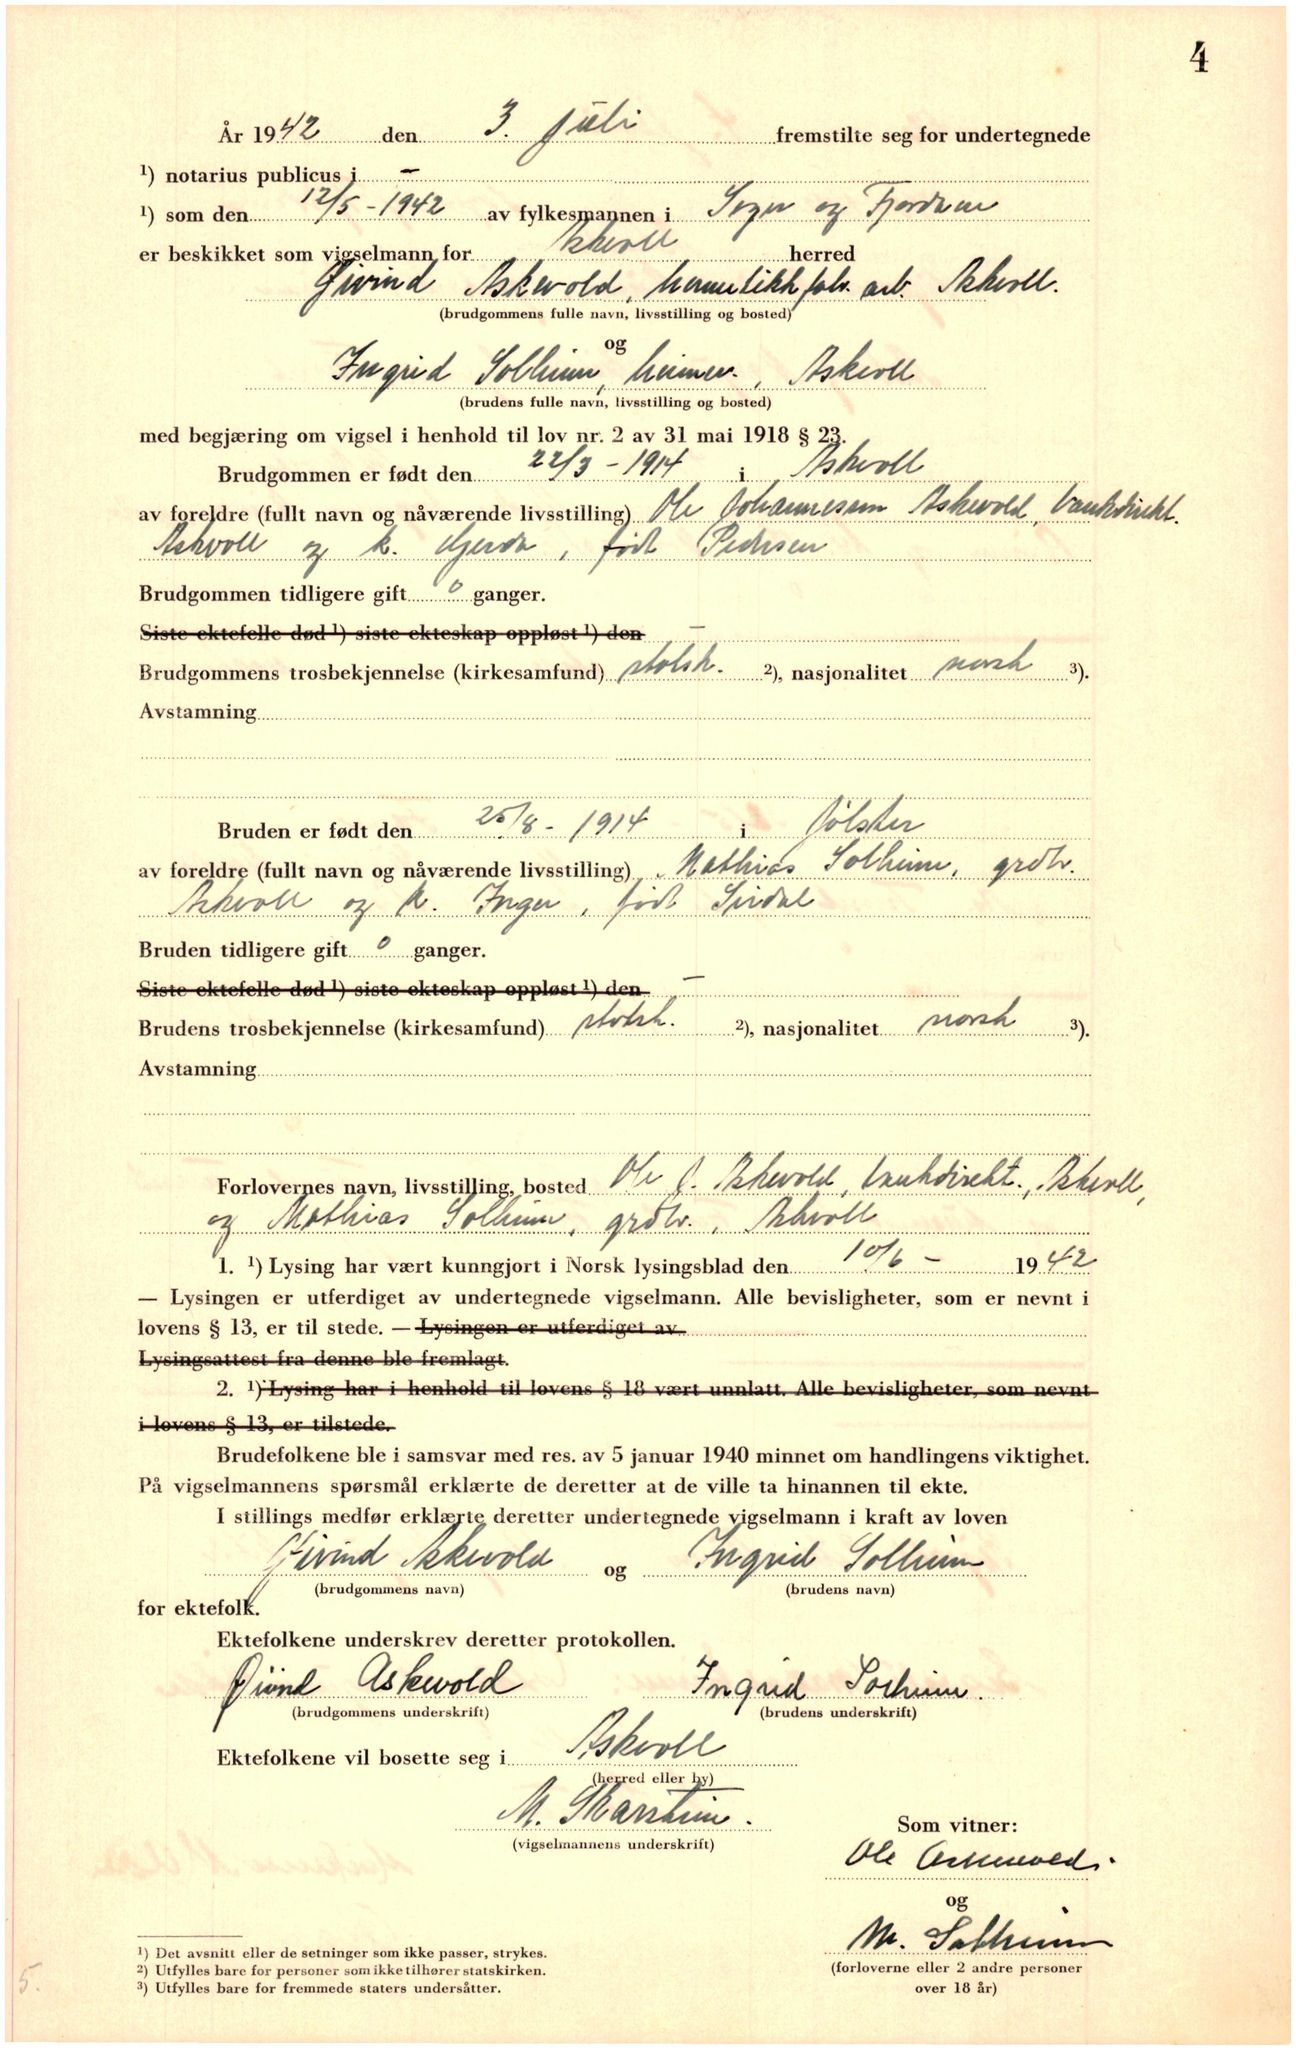 4
År 1942 den 3. Juli fremstilte seg for undertegnede
¹) notarius publicus i —
¹) som den 12/5 - 1942 av fylkesmannen i Sogn og Fjordane
er beskikket som vigselmann for Askvoll herred
Øivind Askevold, hermetikkfabr. arb. Askvoll.
(brudgommens fulle navn, livsstilling og bosted)
og
Ingrid Solheim, heimev., Askvoll
(brudens fulle navn, livsstilling og bosted)
med begjæring om vigsel i henhold til lov nr. 2 av 31 mai 1918 § 23.
Brudgommen er født den 22/3 - 1914 i Askvoll
av foreldre (fullt navn og nåværende livsstilling) Ole Johannessen Askevold, bankdirekt.
Askvoll og k. Gjerda, født Pedersen
Brudgommen tidligere gift 0 ganger.
Siste ektefelle død ¹) siste ekteskap oppløst ¹) den —
Brudgommens trosbekjennelse (kirkesamfund) statsk. ²), nasjonalitet norsk ³).
Avstamning
Bruden er født den 25/8 - 1914 i Jølster
av foreldre (fullt navn og nåværende livsstilling) Mathias Solheim, grdbr.
Askvoll og k. Inger, født
Bruden tidligere gift 0 ganger.
Siste ektefelle død ¹) siste ekteskap oppløst ¹) den —
Brudens trosbekjennelse (kirkesamfund) statsk. ²), nasjonalitet norsk ³).
Avstamning
Forlovernes navn, livsstilling, bosted Ole J. Askevold, bankdirekt., Askvoll,
og Mathias Solheim, grdbr., Askvoll
1. ¹) Lysing har vært kunngjort i Norsk lysingsblad den 10/6 - 1942
— Lysingen er utferdiget av undertegnede vigselmann. Alle bevisligheter, som er nevnt i
lovens § 13, er til stede. — Lysingen er utferdiget av
Lysingsattest fra denne ble fremlagt.
2. ¹) Lysing har i henhold til lovens § 18 vært unnlatt. Alle bevisligheter, som nevnt
i lovens § 13, er tilstede.
Brudefolkene ble i samsvar med res. av 5 januar 1940 minnet om handlingens viktighet.
På vigselmannens spørsmål erklærte de deretter at de ville ta hinannen til ekte.
I stillings medfør erklærte deretter undertegnede vigselmann i kraft av loven
Øivind Askevold og Ingrid Solheim
(brudgommens navn) (brudens navn)
for ektefolk.
Ektefolkene underskrev deretter protokollen.
Øivind Askevold Ingrid Solheim.
(brudgommens underskrift) (brudens underskrift)
Ektefolkene vil bosette seg i Askvoll
(herred eller by)
M. Skarstein.
(vigselmannens underskrift)
Som vitner:
Ole Askevold.
og
M. Solheim
(forloverne eller 2 andre personer
over 18 år)
¹) Det avsnitt eller de setninger som ikke passer, strykes.
²) Utfylles bare for personer som ikke tilhører statskirken.
³) Utfylles bare for fremmede staters undersåtter.
5.